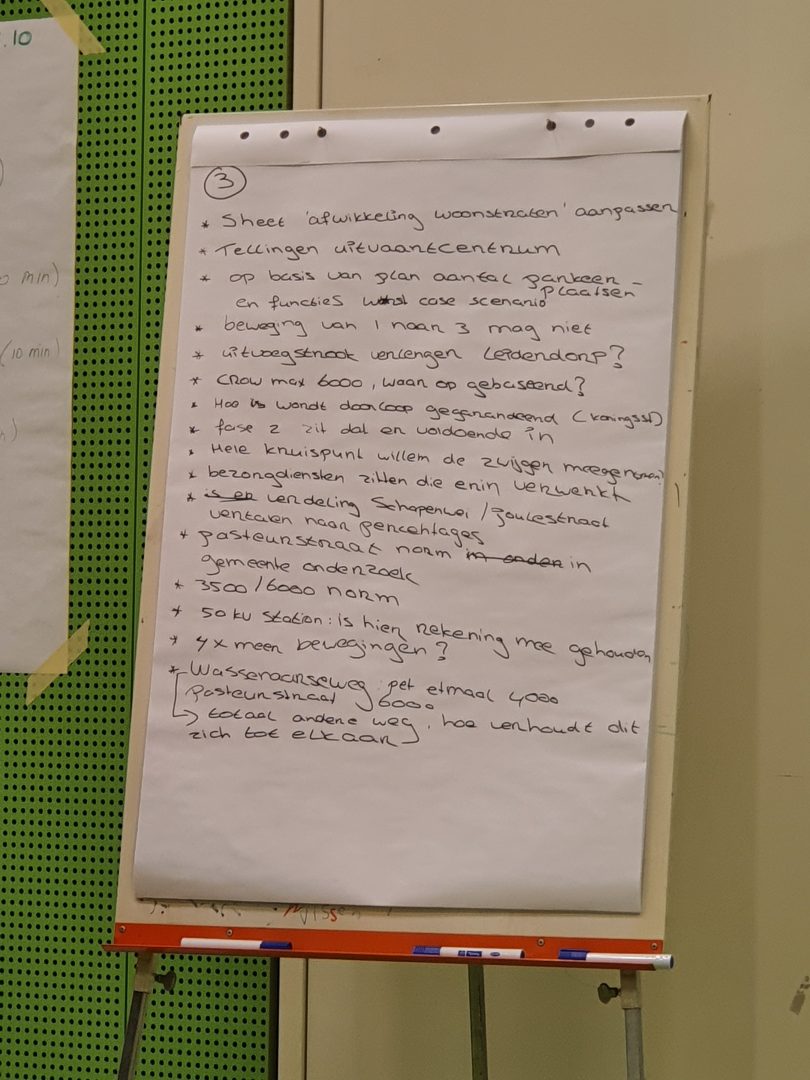 .10
min)
(10 min)
3
* Sheet 'afwikkeling woonstraten' aanpassen.
* Tellingen uitvaartcentrum
* op basis van plan aantal parkeer-
plaatsen
en functies worst case scenario
* beweging van 1 naar 3 mag niet
* uitvoegstrook verlengen Leiderdorp?
* CROW max 6000, waar op gebaseerd?
* Hoe is wordt doorloop gegarandeerd (koningsstr)
* fase 2 zit dat er voldoende in
* Hele kruispunt willem de zwijger meegenomen?
* bezorgdiensten zitten die erin verwerkt
* is er verdeling Schapenwei / Joulestraat
vertalen naar percentages
* Pasteurstraat norm in onder in
gemeente onderzoek
* 3500/6000 norm
* 50 kv station: is hier rekening mee gehouden
* 4x meer bewegingen?
* Wassenaarseweg: pet etmaal 4000
Pasteurstraat 6000
→ totaal andere weg, hoe verhoudt dit
zich tot elkaar